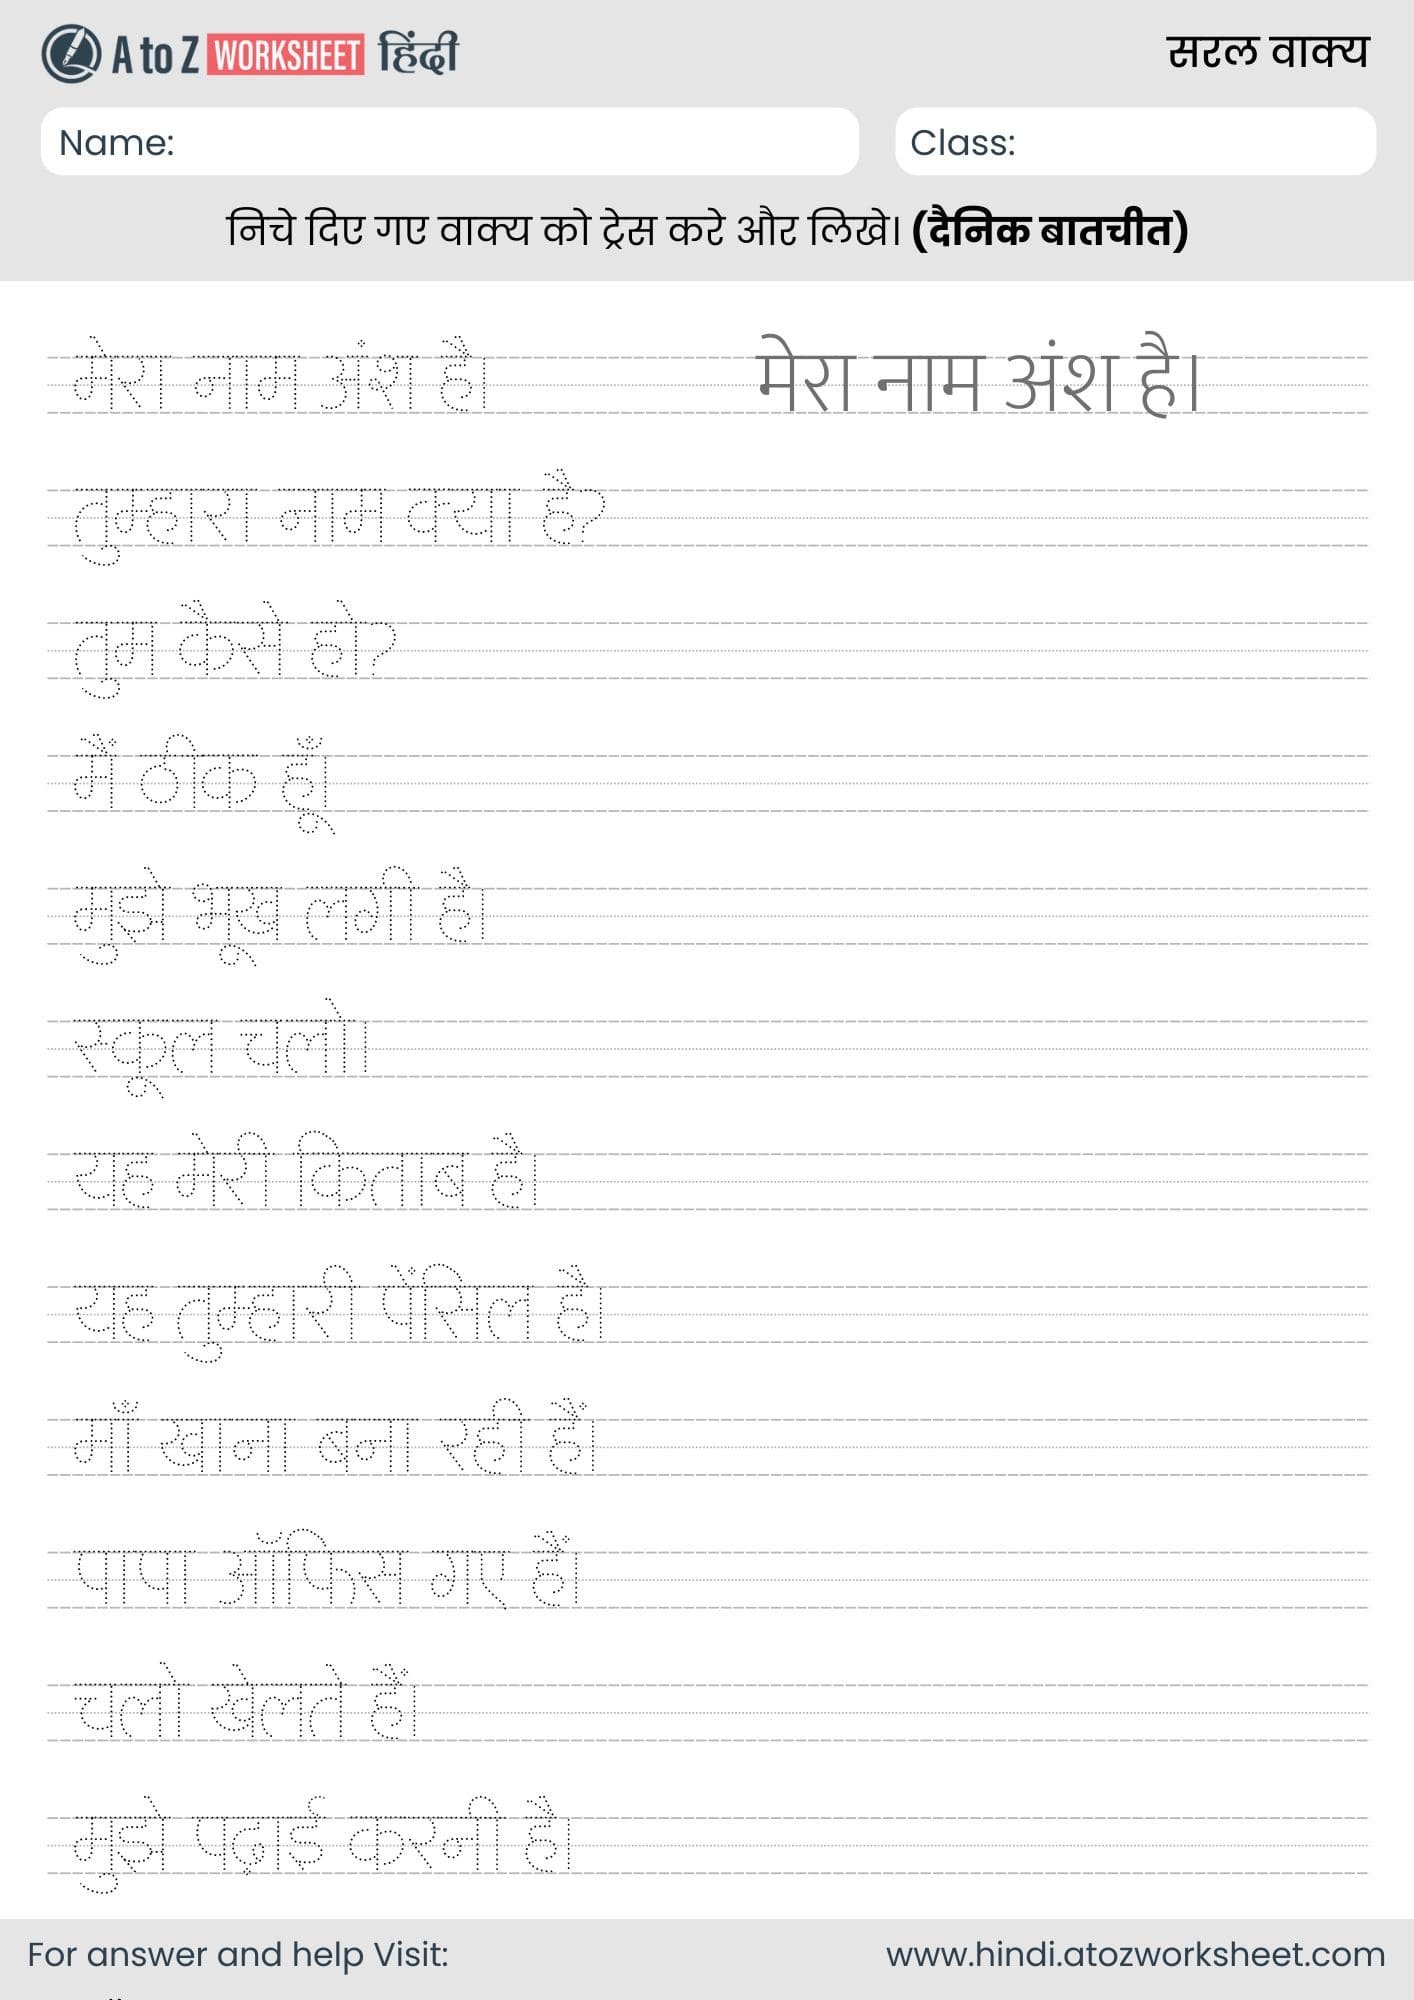 A to Z WORKSHEET हिंदी
सरल वाक्य
Name:
Class:
निचे दिए गए वाक्य को ट्रेस करे और लिखे। (दैनिक बातचीत)
मेरा नाम अंश है। मेरा नाम अंश है।
तुम्हारा नाम क्या है?
तुम कैसे हो?
मैं ठीक हूँ।
मुझे भूख लगी है।
स्कूल चलो।
यह मेरी किताब है।
यह तुम्हारी पेंसिल है।
माँ खाना बना रही हैं।
पापा ऑफिस गए हैं।
चलो खेलते हैं।
मुझे पढ़ाई करनी है।
For answer and help Visit:
www.hindi.atozworksheet.com